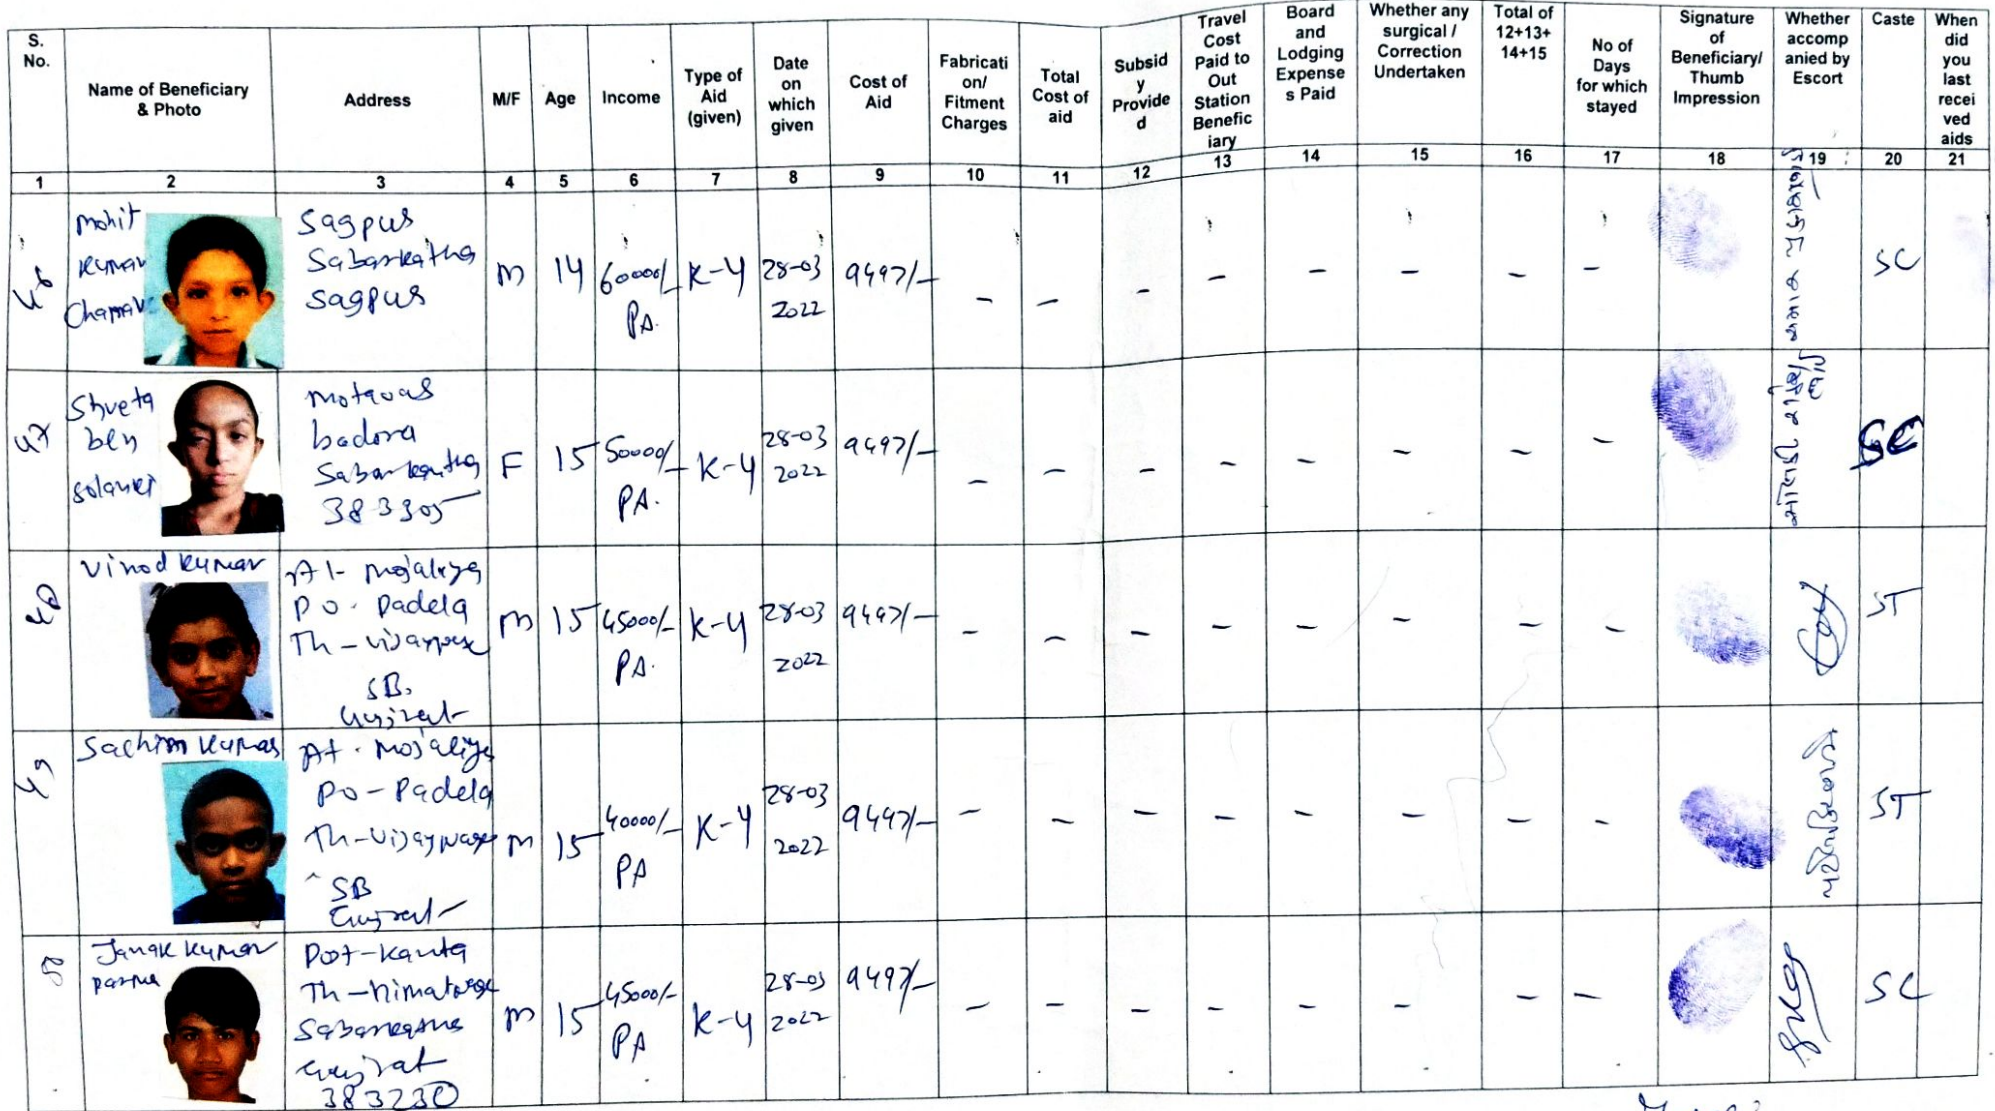 S. No.
Name of Beneficiary & Photo
Address
M/F
Age
Income
Type of Aid (given)
Date on which given
Cost of Aid
Fabricati on/ Fitment Charges
Total Cost of aid
Subsid y Provide d
Travel Cost Paid to Out Station Benefic iary
Board and Lodging Expense s Paid
Whether any surgical / Correction Undertaken
Total of 12+13+ 14+15
No of Days for which stayed
Signature of Beneficiary/ Thumb Impression
Whether accomp anied by Escort
Caste
When did you last recei ved aids
1 2 3 4 5 6 7 8 9 10 11 12 13 14 15 16 17 18 19 20 21
Mohit
Kumar
Sagpur
Sabarkatha
Sagpur
M 14 60000/- PA. K-4 28-03 2022 9497/- - - - - - - - - SC
47
Shveta
ben
Solanki
Motavas
badora
Sabarkantha
383305
F 15 50000/- PA. K-4 28-03 2022 9497/- - - - - - - - - SC
Vinod Kumar
At- Mojaliya
PO- Padela
Th-
SB.
Gujrat
M 15 45000/- PA. K-4 28-03 2022 9497/- - - - - - - - - ST
49
Sachin Kumar
At- Mojaliya
Po- Padela
Th-
SB
Gujrat
M 15 40000/- PA K-4 28-03 2022 9497/- - - - - - - - - ST
50
Janak Kumar
Th-
Sabarkatha
Gujrat
383230
M 15 45000/- PA K-4 28-03 2022 9497/- - - - - - - - - SC